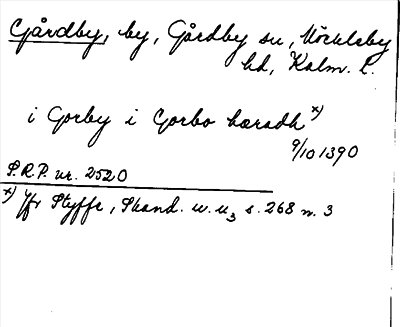 Gårdby, by, Gårdby sn, Möckleby
hd, Kalm. l.
i Gorby i Gorbo hæradh x)
9/10 1390
S.R.P. nr. 2520
x) Jfr Styffe, Skand. u. u3 s. 268 n. 3